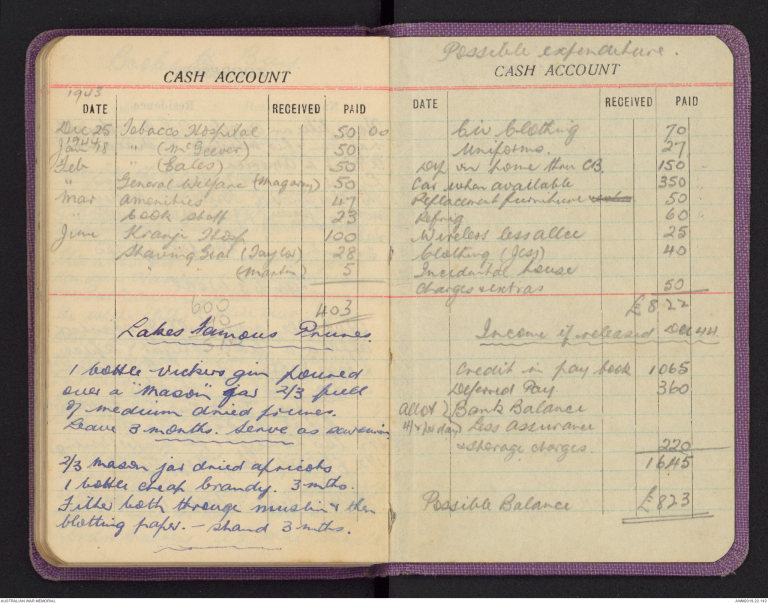 CASH ACCOUNT
1943
DATE RECEIVED PAID
Dec 25 Tobacco Hospital 50 00
1944
Jan 18 " (McGeever) 50
Feb " (Eales) 50
" General Welfare (Magarry) 50
Mar amenities 47
" Cook staff 23
June Kranji Hosp 100
Shaving Gear (Taylor) 28
" " (Martin) 5
600
403
Lakes Famous Prunes.
1 bottle Vickers gin poured
over a "mason" jar 2/3 full
of medium dried prunes.
Leave 3 months. Serve as
2/3 mason jar dried apricots
1 bottle cheap brandy. 3 mths.
Filter both through muslin & then
blotting paper. – stand 3 mths.
Possible expenditure.
CASH ACCOUNT
DATE RECEIVED PAID
Civ Clothing 70
Uniforms. 27
Dep on home thru CB. 150
Car when available 350
Replacement furniture 50
Refrig 60
Wireless less allce 25
Clothing (Jess) 40
Incidental house
charges & extras 50
£822
Income if released Dec 44
Credit in pay book 1065
Deferred Pay 360
Allot Bank Balance
4/- per day Less assurance
& storage charges. 220
1645
Possible Balance £823
AUSTRALIAN WAR MEMORIAL